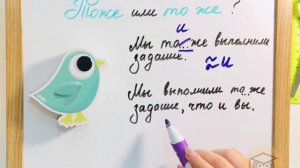 Тоже или то же ?
и
Мы то..же выполнили
задание. ≈и
Мы выполнили то..же
задание, что и вы.